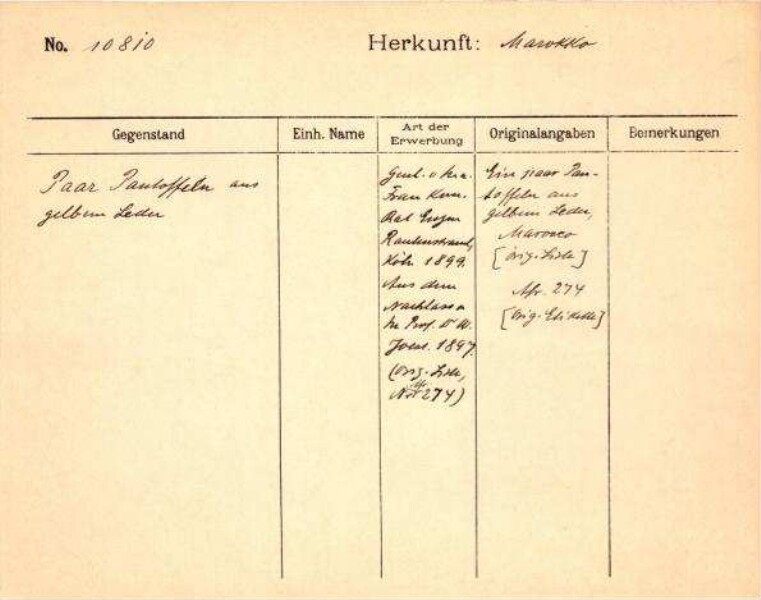 No. 10810
Herkunft: Marokko
Gegenstand
Einh. Name
Art der
Erwerbung
Originalangaben
Bemerkungen
Paar Pantoffeln aus
gelbem Leder
Frau Kom.
Rat Eugen
Rautenstrauch,
Köln 1899.
Aus dem
Nachlass
Prof. Dr W.
Joest. 1897.
(Orig.-Liste,
Afr. 274)
Ein paar Pan-
toffeln aus
gelbem Leder,
Marocco
[Orig.-Liste]
Afr. 274
[Orig.-Etikette]